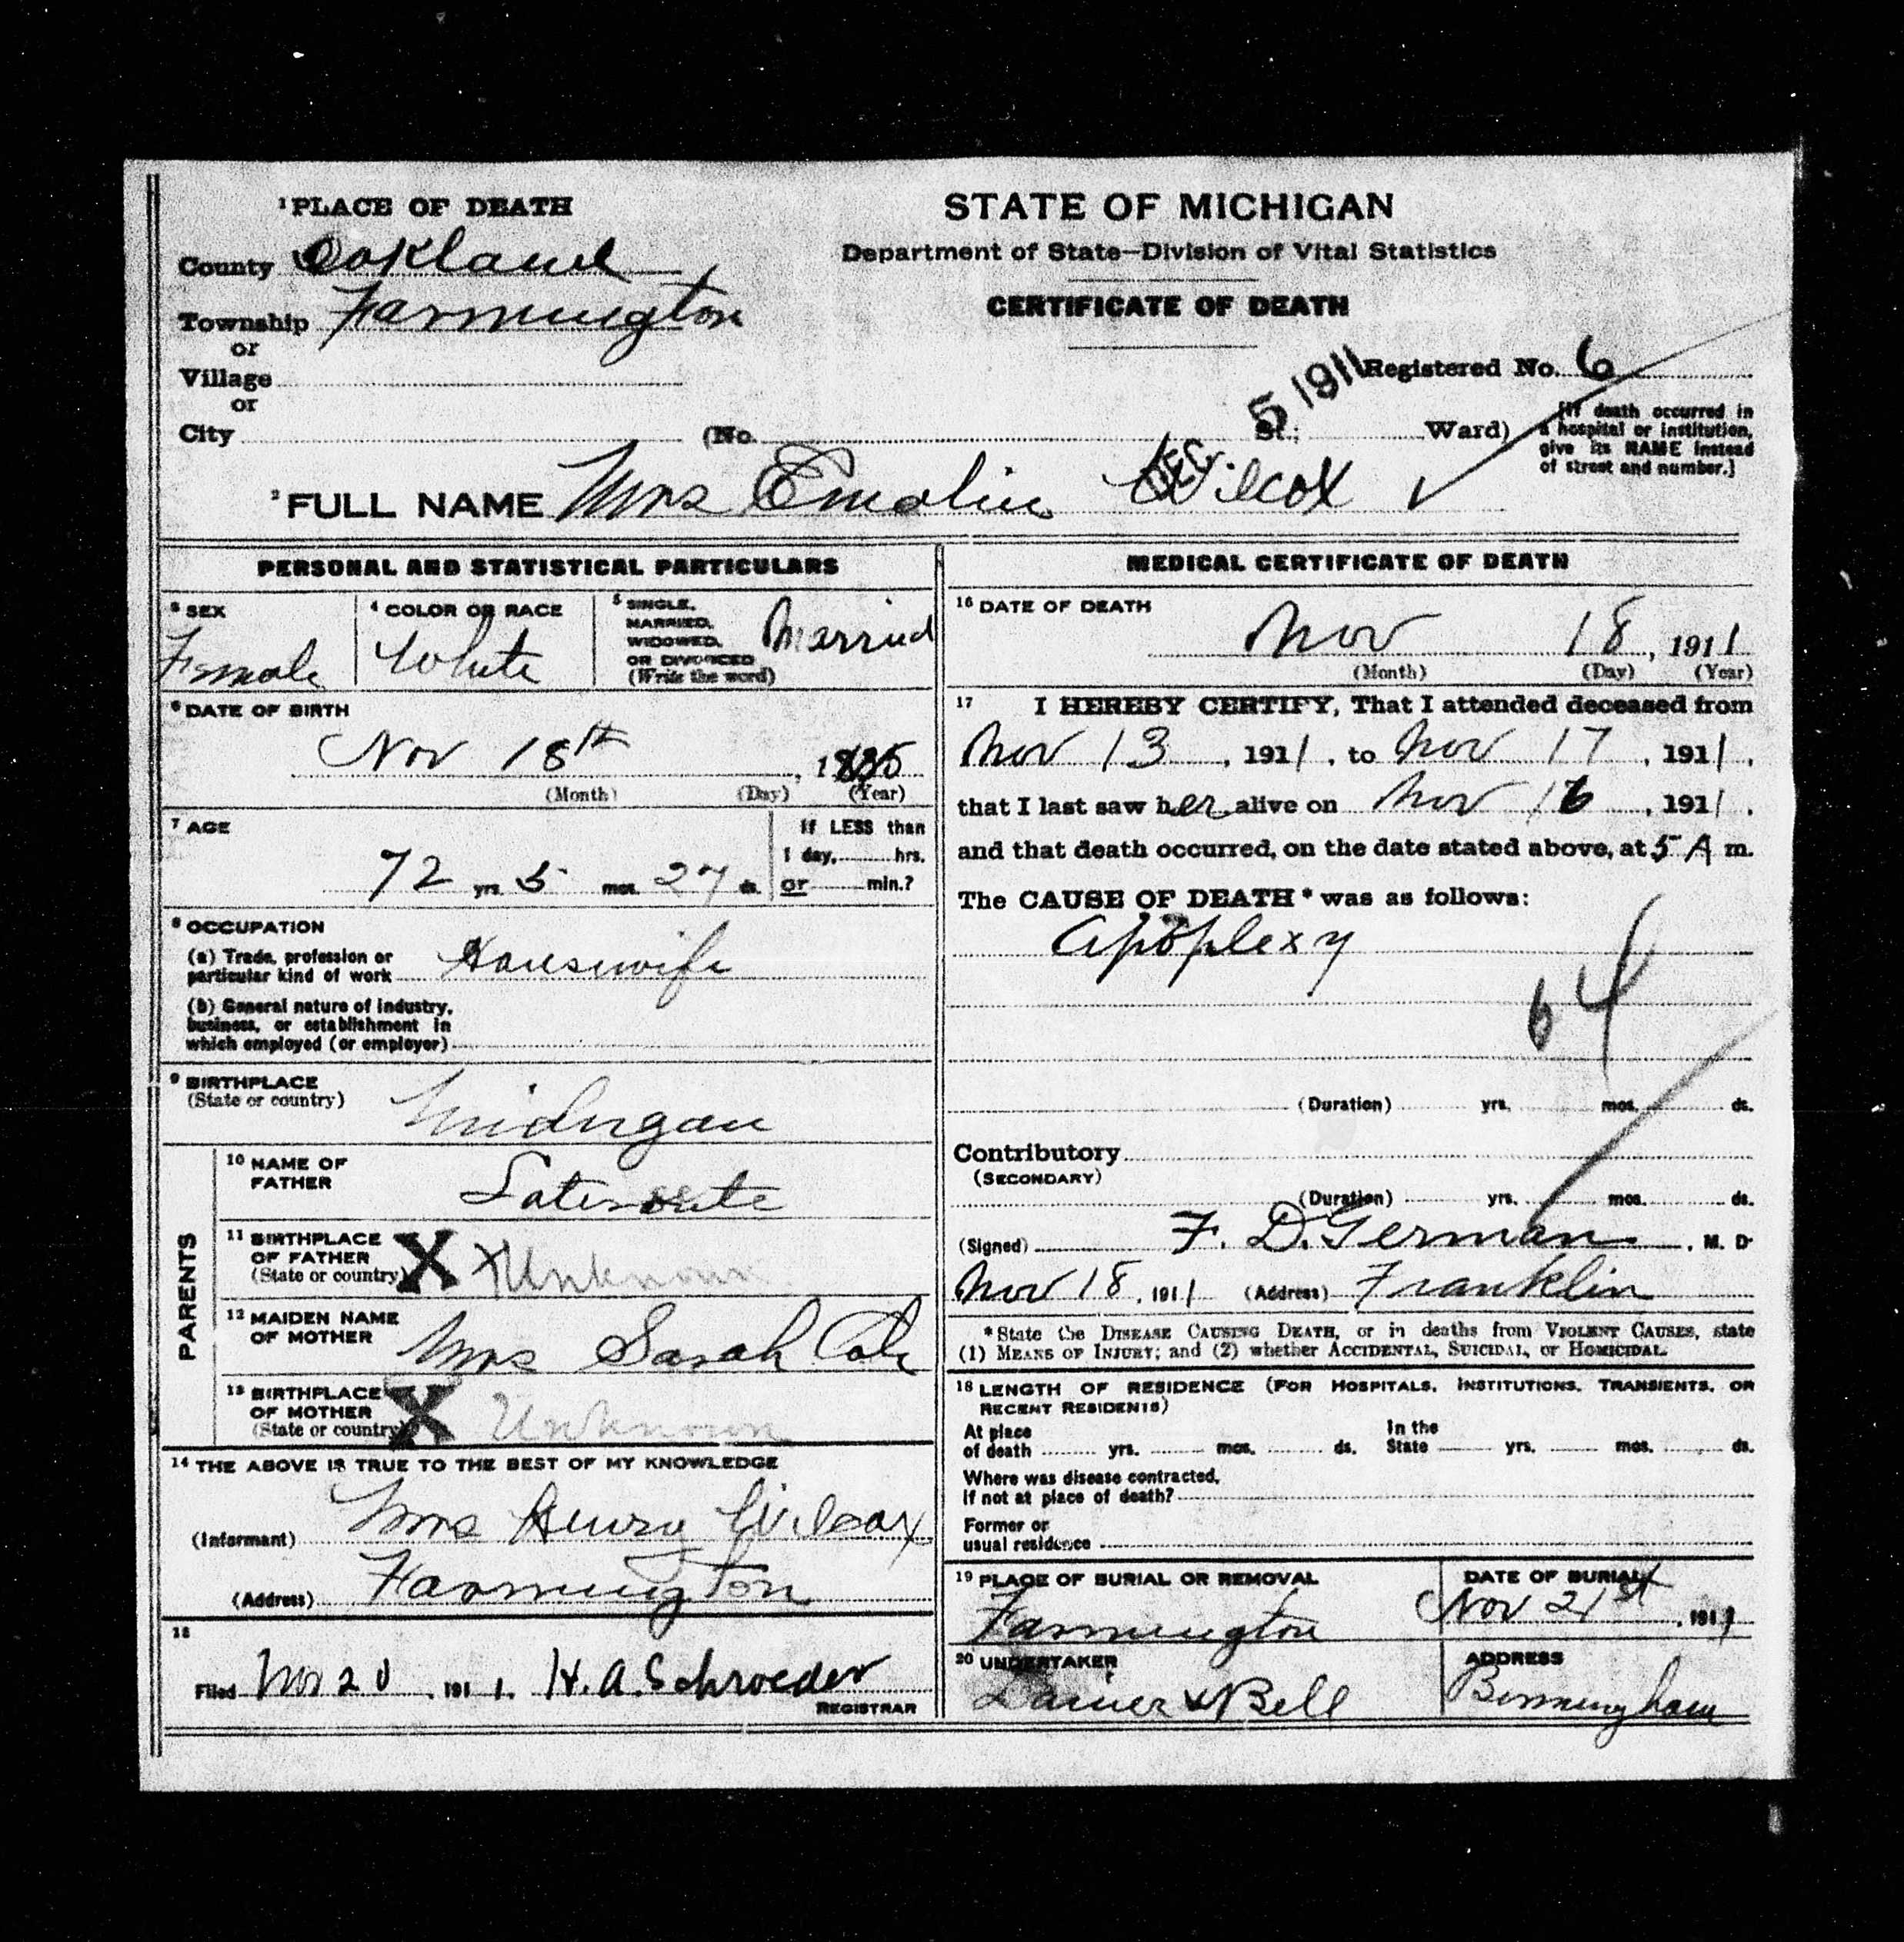 1 PLACE OF DEATH
County Oakland
Township Farmington
or
Village
or
City (No. St.; Ward)
STATE OF MICHIGAN
Department of State—Division of Vital Statistics
CERTIFICATE OF DEATH
DEC. 5 1911
Registered No. 6
[If death occurred in
a hospital or institution,
give its NAME instead
of street and number.]
2 FULL NAME Mrs Emaline Wilcox
PERSONAL AND STATISTICAL PARTICULARS
3 SEX
Female
4 COLOR OR RACE
White
5 SINGLE,
MARRIED,
WIDOWED,
OR DIVORCED
(Write the word)
Married
6 DATE OF BIRTH
Nov 18th, 1835
(Month) (Day) (Year)
7 AGE
72 yrs. 5 mos. 27 ds.
If LESS than
1 day, hrs.
or min.?
8 OCCUPATION
(a) Trade, profession or
particular kind of work Housewife
(b) General nature of industry,
business, or establishment in
which employed (or employer)
9 BIRTHPLACE
(State or country)
Michigan
PARENTS
10 NAME OF
FATHER
11 BIRTHPLACE
OF FATHER
(State or country)
X x Unknown
12 MAIDEN NAME
OF MOTHER
Mrs Sarah Cole
13 BIRTHPLACE
OF MOTHER
(State or country)
X Unknown
14 THE ABOVE IS TRUE TO THE BEST OF MY KNOWLEDGE
(Informant) Mrs Henry Wilcox
(Address) Farmington
15
Filed Nov 20, 1911. H. A. Schroeder
REGISTRAR
MEDICAL CERTIFICATE OF DEATH
16 DATE OF DEATH
Nov 18, 1911
(Month) (Day) (Year)
17 I HEREBY CERTIFY, That I attended deceased from
Nov 13, 1911, to Nov 17, 1911,
that I last saw her alive on Nov 16, 1911,
and that death occurred, on the date stated above, at 5 A m.
The CAUSE OF DEATH* was as follows:
Apoplexy
64
(Duration) yrs. mos. ds.
Contributory
(SECONDARY)
(Duration) yrs. mos. ds.
(Signed) F. D. German, M. D
Nov 18, 1911 (Address) Franklin
*State the DISEASE CAUSING DEATH, or in deaths from VIOLENT CAUSES, state
(1) MEANS OF INJURY; and (2) whether ACCIDENTAL, SUICIDAL, or HOMICIDAL.
18 LENGTH OF RESIDENCE (FOR HOSPITALS, INSTITUTIONS, TRANSIENTS, OR
RECENT RESIDENTS)
At place
of death yrs. mos. ds.
In the
State yrs. mos. ds.
Where was disease contracted,
if not at place of death?
Former or
usual residence
19 PLACE OF BURIAL OR REMOVAL
Farmington
DATE OF BURIAL
Nov 21st, 1911
20 UNDERTAKER
& Bell
ADDRESS
Birmingham